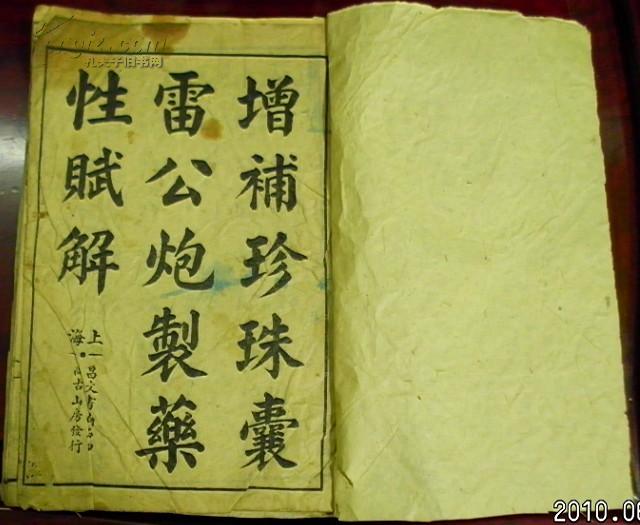 增補珍珠囊
雷公炮製藥
性賦解
上海
昌文書
古山房發行
孔夫子旧书网
2010.0